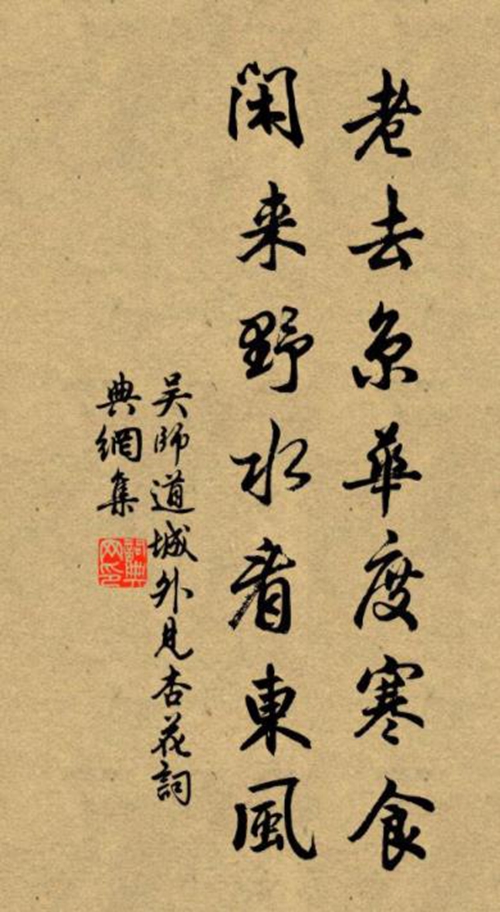 老去京華度寒食
閑来野水看東風
吴師道城外見杏花詞
典網集
詞典
网印